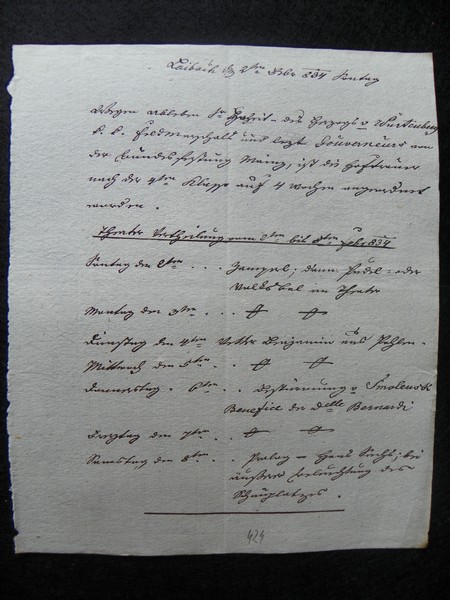 Laibach den 2ten Febr 834 Sontag
Wegen Ableben Sr Hoheit des Herzogs v Würtenberg
k. k. Feldmarschall und lezt Gouverneurs von
der Bundesfestung Mainz, ist die Hoftrauer
nach der 4ten Klasse auf 4 Wochen angeordnet
worden.
Theater Vertheilung vom 2ten bis 8ten Febr 834
Sontag den 2ten . . . dann Pudel- oder
Volksbal im Theater
Montag den 3ten . . . # #
Dienstag den 4ten Vetter Benjamin aus Pohlen.
Mittwoch den 5ten . . . # #
Donnerstag 6ten . . . Bestürmung v Smolensk
Benefice der Dlle Bernardi
Freytag den 7ten . . . # #
Samstag den 8ten . . . Prolog - Hans Sachs; bei
äußerer Beleuchtung des
Schauplatzes.
424